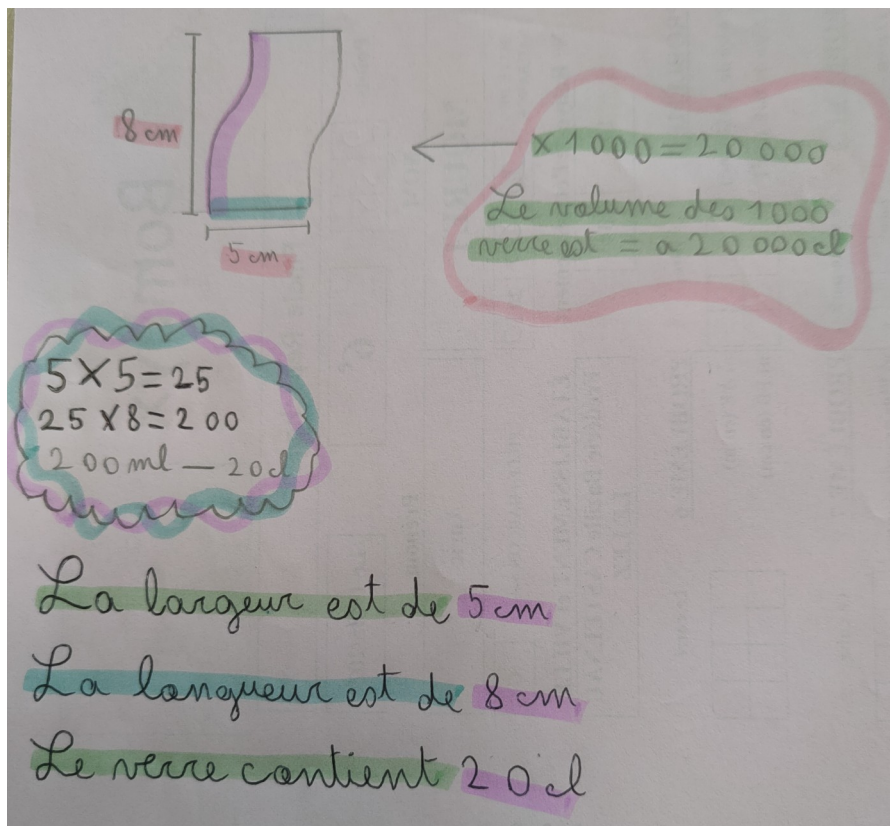 8 cm
5 cm
× 1 000 = 20 000
Le volume des 1000
verre est = a 20 000 cl
5 × 5 = 25
25 × 8 = 200
200 ml — 20 cl
La largeur est de 5 cm
La longueur est de 8 cm
Le verre contient 20 cl